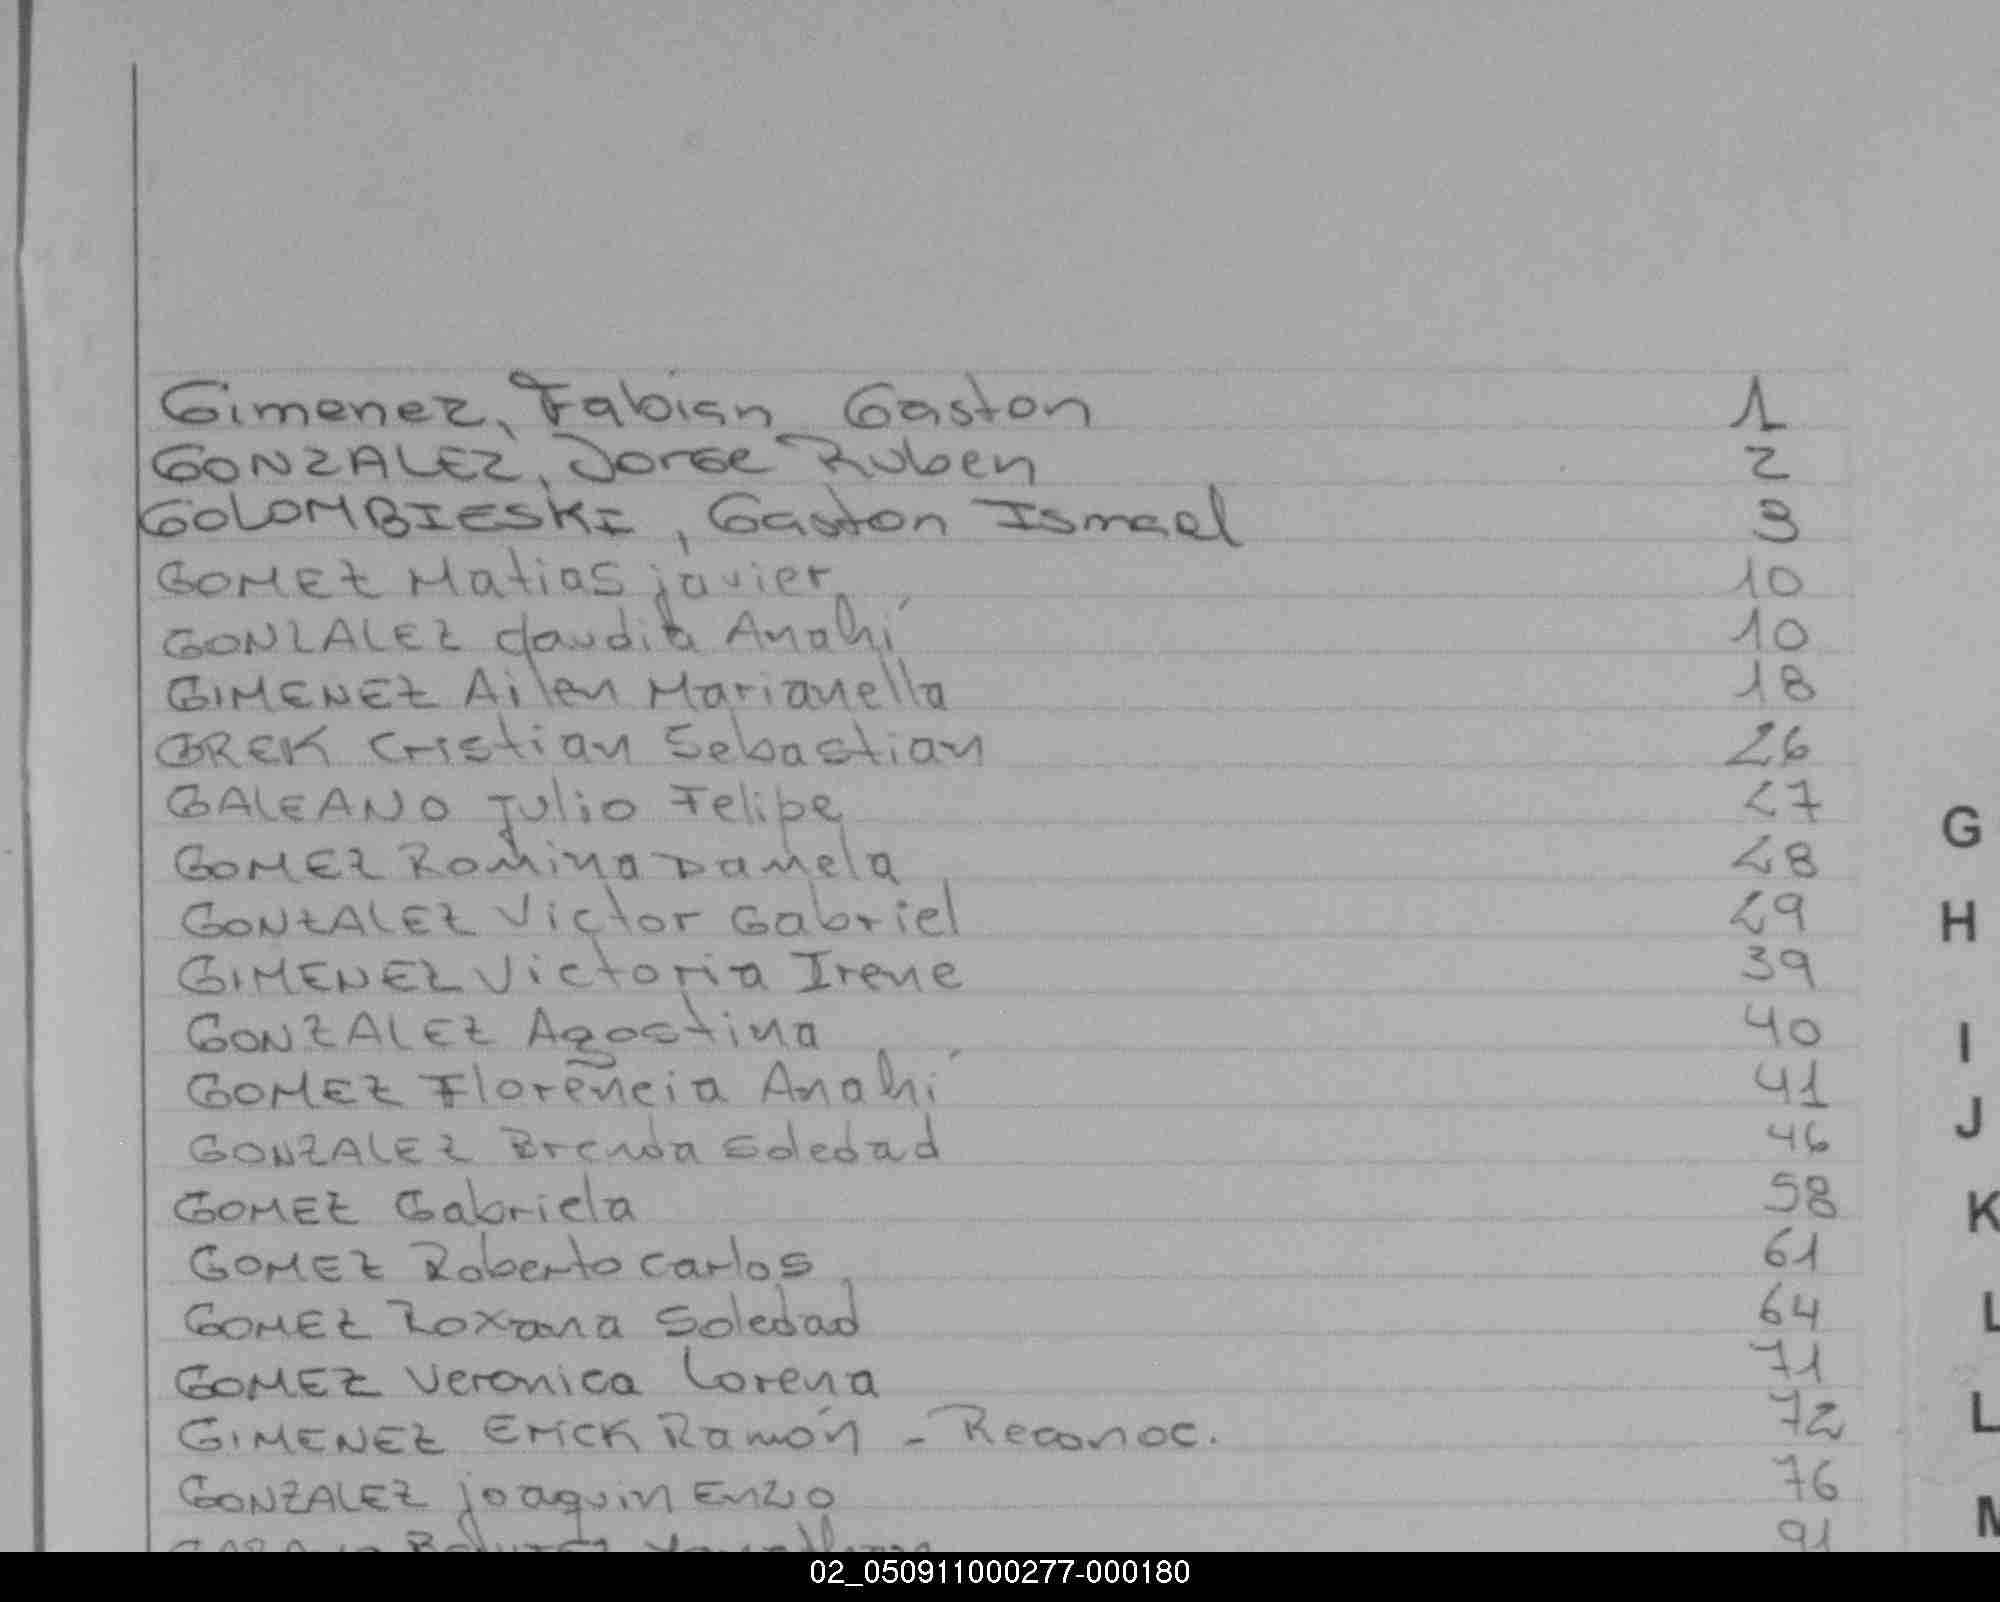 Gimenez, Fabian Gaston 1
GONZALEZ, Jorge Ruben 2
GOLOMBIESKI, Gaston Ismael 3
GOMEZ Matias javier 10
GONZALEZ claudia Anahí 10
GIMENEZ Ailen Marianella 18
GREK Cristian Sebastian 26
GALEANO Julio Felipe 27
GOMEZ Romina Daniela 28
GONZALEZ Victor Gabriel 29
GIMENEZ Victoria Irene 39
GONZALEZ Agostina 40
GOMEZ Florencia Anahí 41
GONZALEZ Brenda Soledad 46
GOMEZ Gabriela 58
GOMEZ Roberto Carlos 61
GOMEZ Roxana Soledad 64
GOMEZ Veronica Lorena 71
GIMENEZ Erick Ramón - Reconoc. 72
GONZALEZ joaquin Enzo 76
91
G
H
I
J
K
L
L
M
02_050911000277-000180